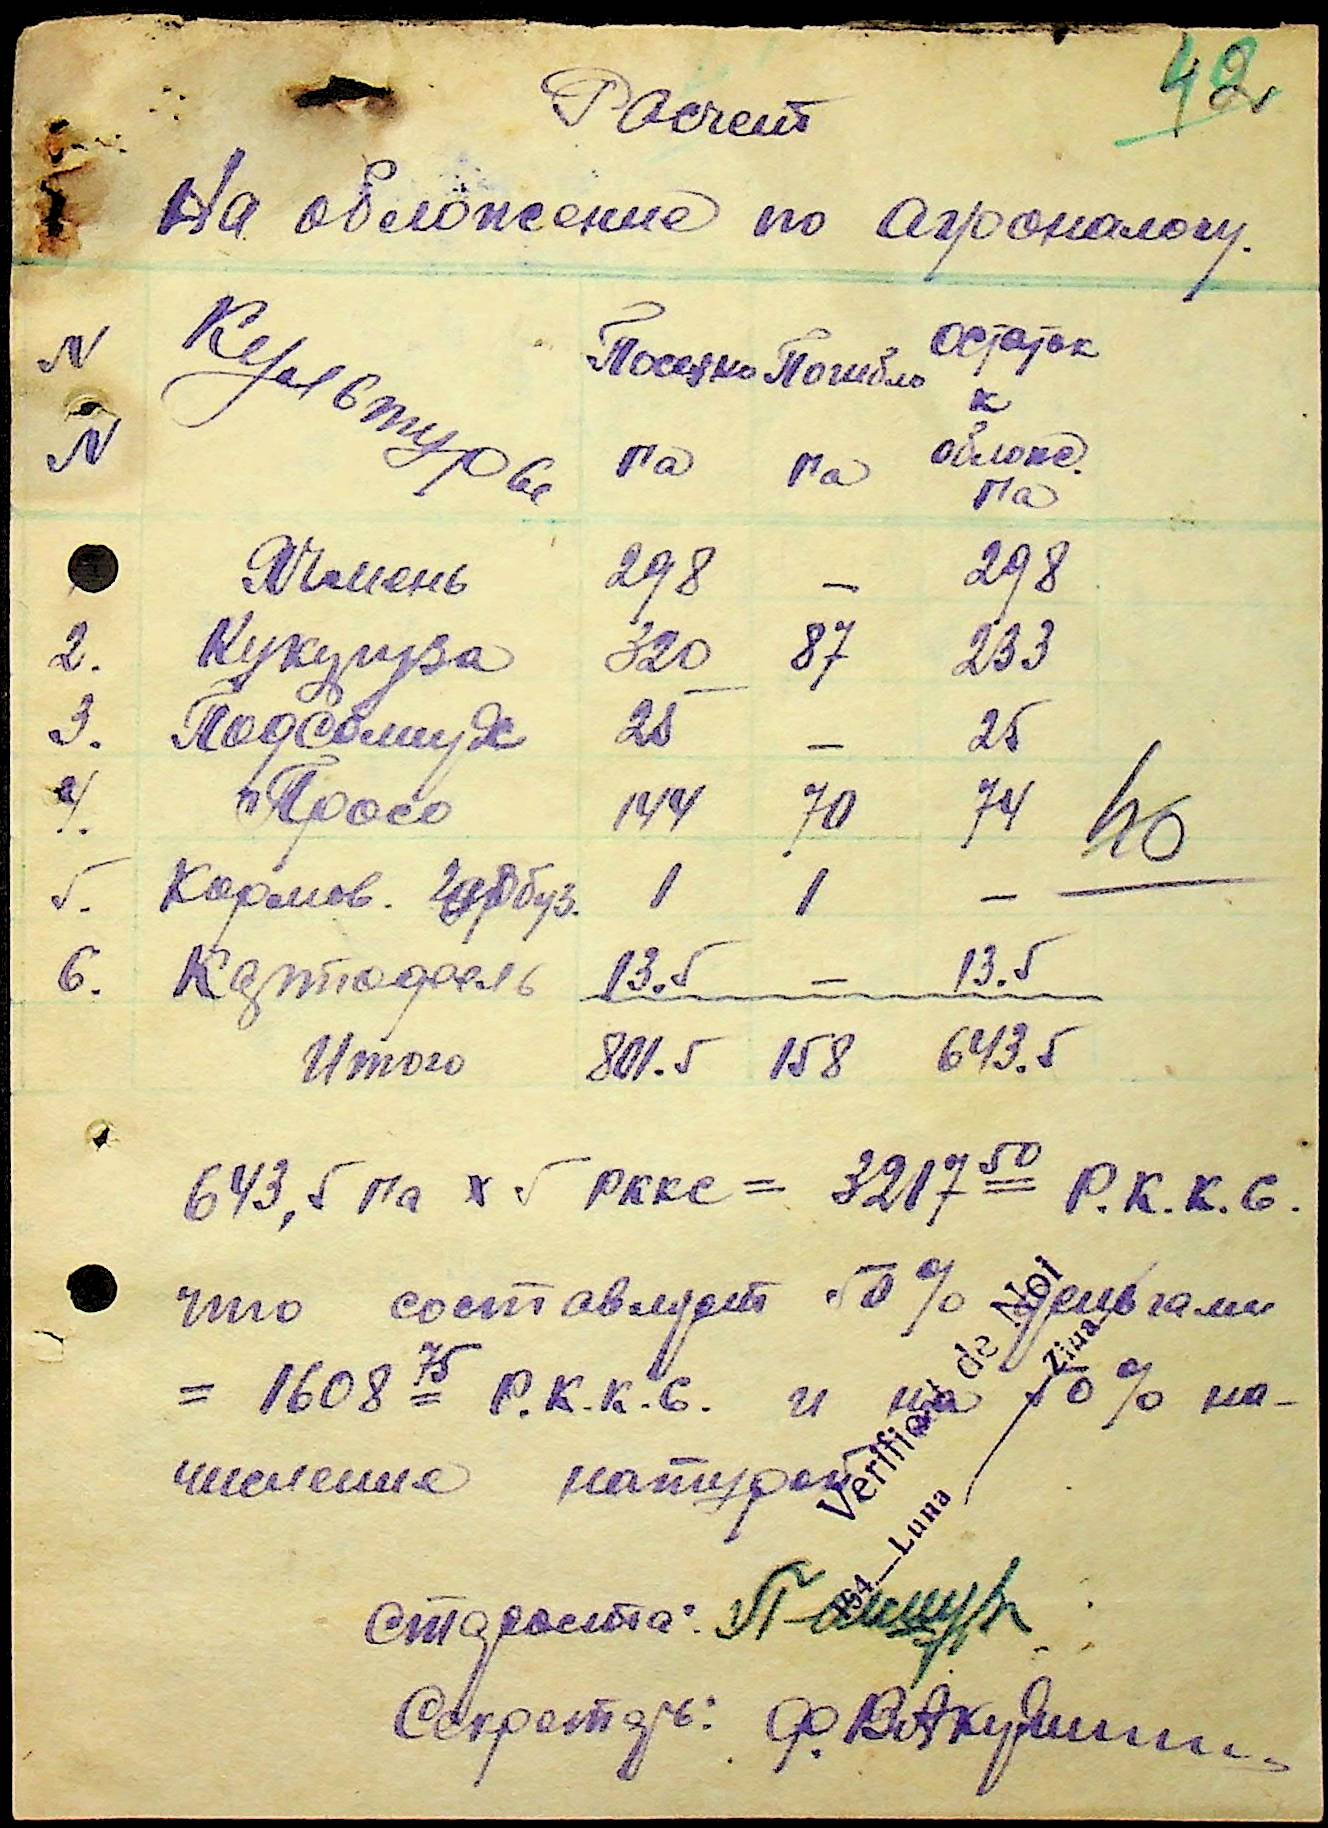 42
Расчет
На обложение по агроналогу.
N N Культуры Посеяно га Погибло га Остаток к облож. га
Ячмень 298 – 298
2. Кукуруза 320 87 233
3. Подсолнух 25 – 25
4. Просо 144 70 74
5. Кормов. арбуз. 1 1 –
6. Картофель 13.5 – 13.5
Итого 801.5 158 643.5
643,5 га х 5 РККС = 3217 50 Р.К.К.С.
что составляет 50% деньгами
= 1608 75 Р.К.К.С. и на 50% на-
числение натурой
Verificat de Noi
194__ Luna Ziua
Староста:
Секретарь: